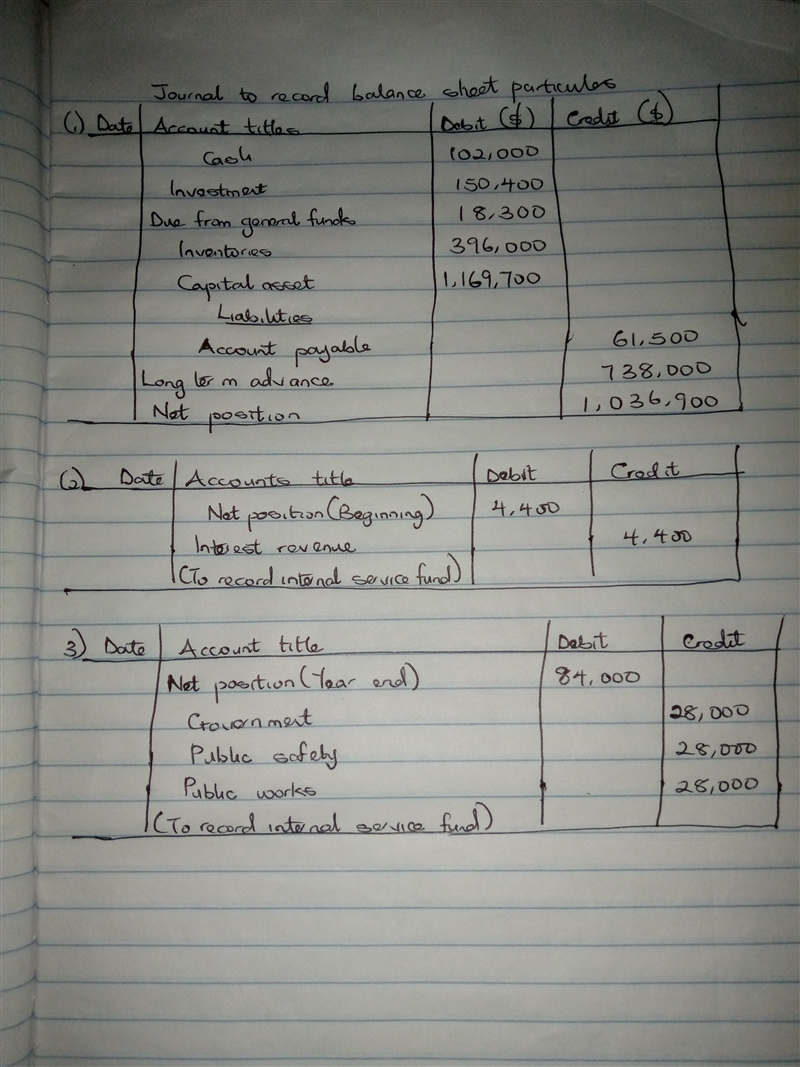 Journal to record balance sheet particules
(1) Date Account titles Debit ($) Credit ($)
Cash 102,000
Investment 150,400
Due from general funds 18,300
Inventories 396,000
Capital asset 1,169,700
Liabilities
Account payable 61,500
Long term advance 738,000
Net position 1,036,900
(2) Date Accounts title Debit Credit
Net position (Beginning) 4,400
Interest revenue 4,400
(To record internal service fund)
3) Date Account title Debit Credit
Net position (Year end) 84,000
Government 28,000
Public safety 28,000
Public works 28,000
(To record internal service fund)